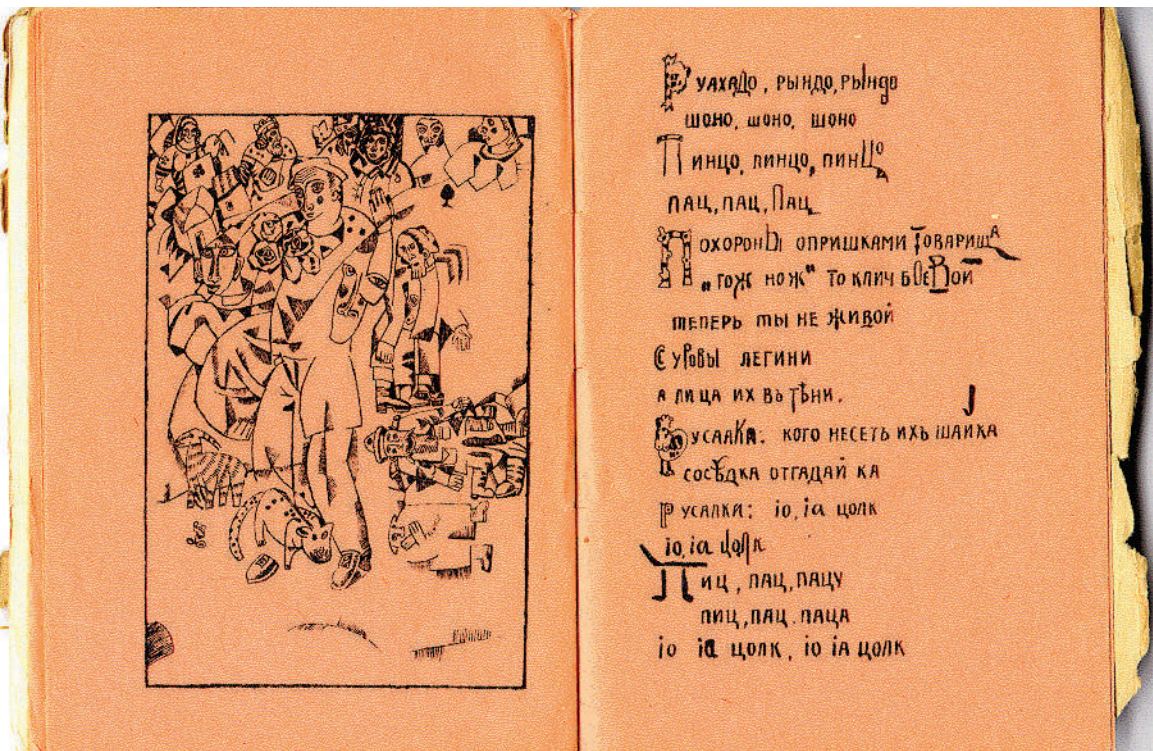 РУАХАДО, РЫНДО, РЫНДО
ШОНО, ШОНО, ШОНО
ПИНЦО, ПИНЦО, ПИНЦО
ПАЦ, ПАЦ, ПАЦ
ПОХОРОНЫ ОПРИШКАМИ ТОВАРИЩА
„ГОЖ НОЖ" ТО КЛИЧ БОЕВОЙ
ТЕПЕРЬ ТЫ НЕ ЖИВОЙ
СУРОВЫ ЛЕГИНИ
А ЛИЦА ИХ ВЪ ТѢНИ.
РУСАЛКА: КОГО НЕСЕТЬ ИХЪ ШАЙКА
СОСѢДКА ОТГАДАЙ КА
РУСАЛКИ: іо, іа ЦОЛК
іо, іа ЦОЛК
ПИЦ, ПАЦ, ПАЦУ
ПИЦ, ПАЦ. ПАЦА
іо іа ЦОЛК, іо іА ЦОЛК